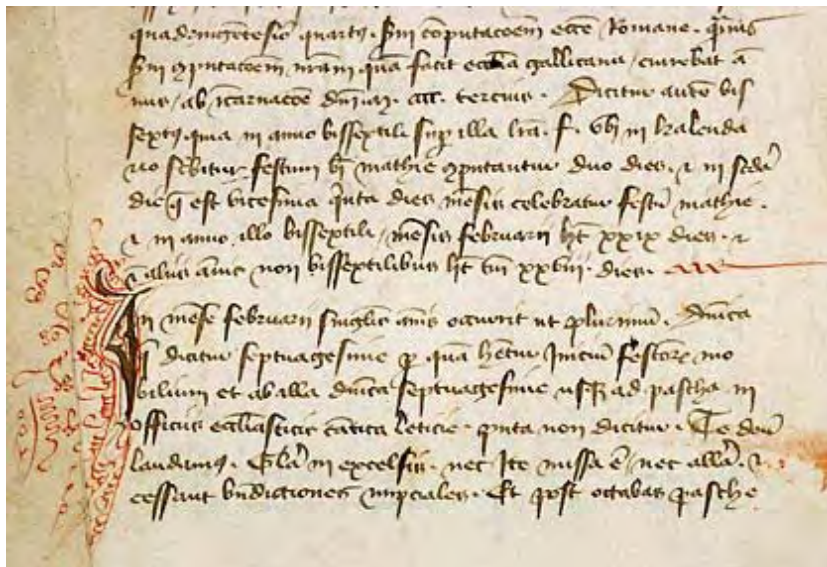 quadringẽtesiõ quartꝰ. scḋm cõputacoem ecce Romane. q̃uis
scḋm ꝯputacoem nr̃am quã facit ecclia gallicana / currebat ã
nus / ab ĩcarnacoe dñi. tercius. Dicitur autẽ bis
sextꝰ quia in anno bissextili sup illa lr̃a. f. vbi in kalenda
rio scbitur festum bi mathie ꝯputantur duo dies. ⁊ in scḋa
die q̃ est vicesima quinta dies mẽsis celebratur festũ mathie.
⁊ in anno illo bissextili / mẽsis februarii hꝫ xxix dies. ⁊
ĩ aliis ãnis non bissextilibus hꝫ tm̃ xxviii. dies.
In mẽse februarii singlis ãnis occurrit ut plurimũ. dnĩca
q̃ dicitur septuagesime ꝑ quã hẽtur Iniciũ festoꝝ mo
bilium et ab alla dnĩca septuagesime usqꝫ ad pascha in
officiis eccliasticis cãtica leticie. non dicitur. Te deũ
laudamꝰ. Gl̃a in excelsis. nec Ite missa ẽ / nec all̃a. ⁊
cessant bñdictiones nupciales. Et post octabas pasche